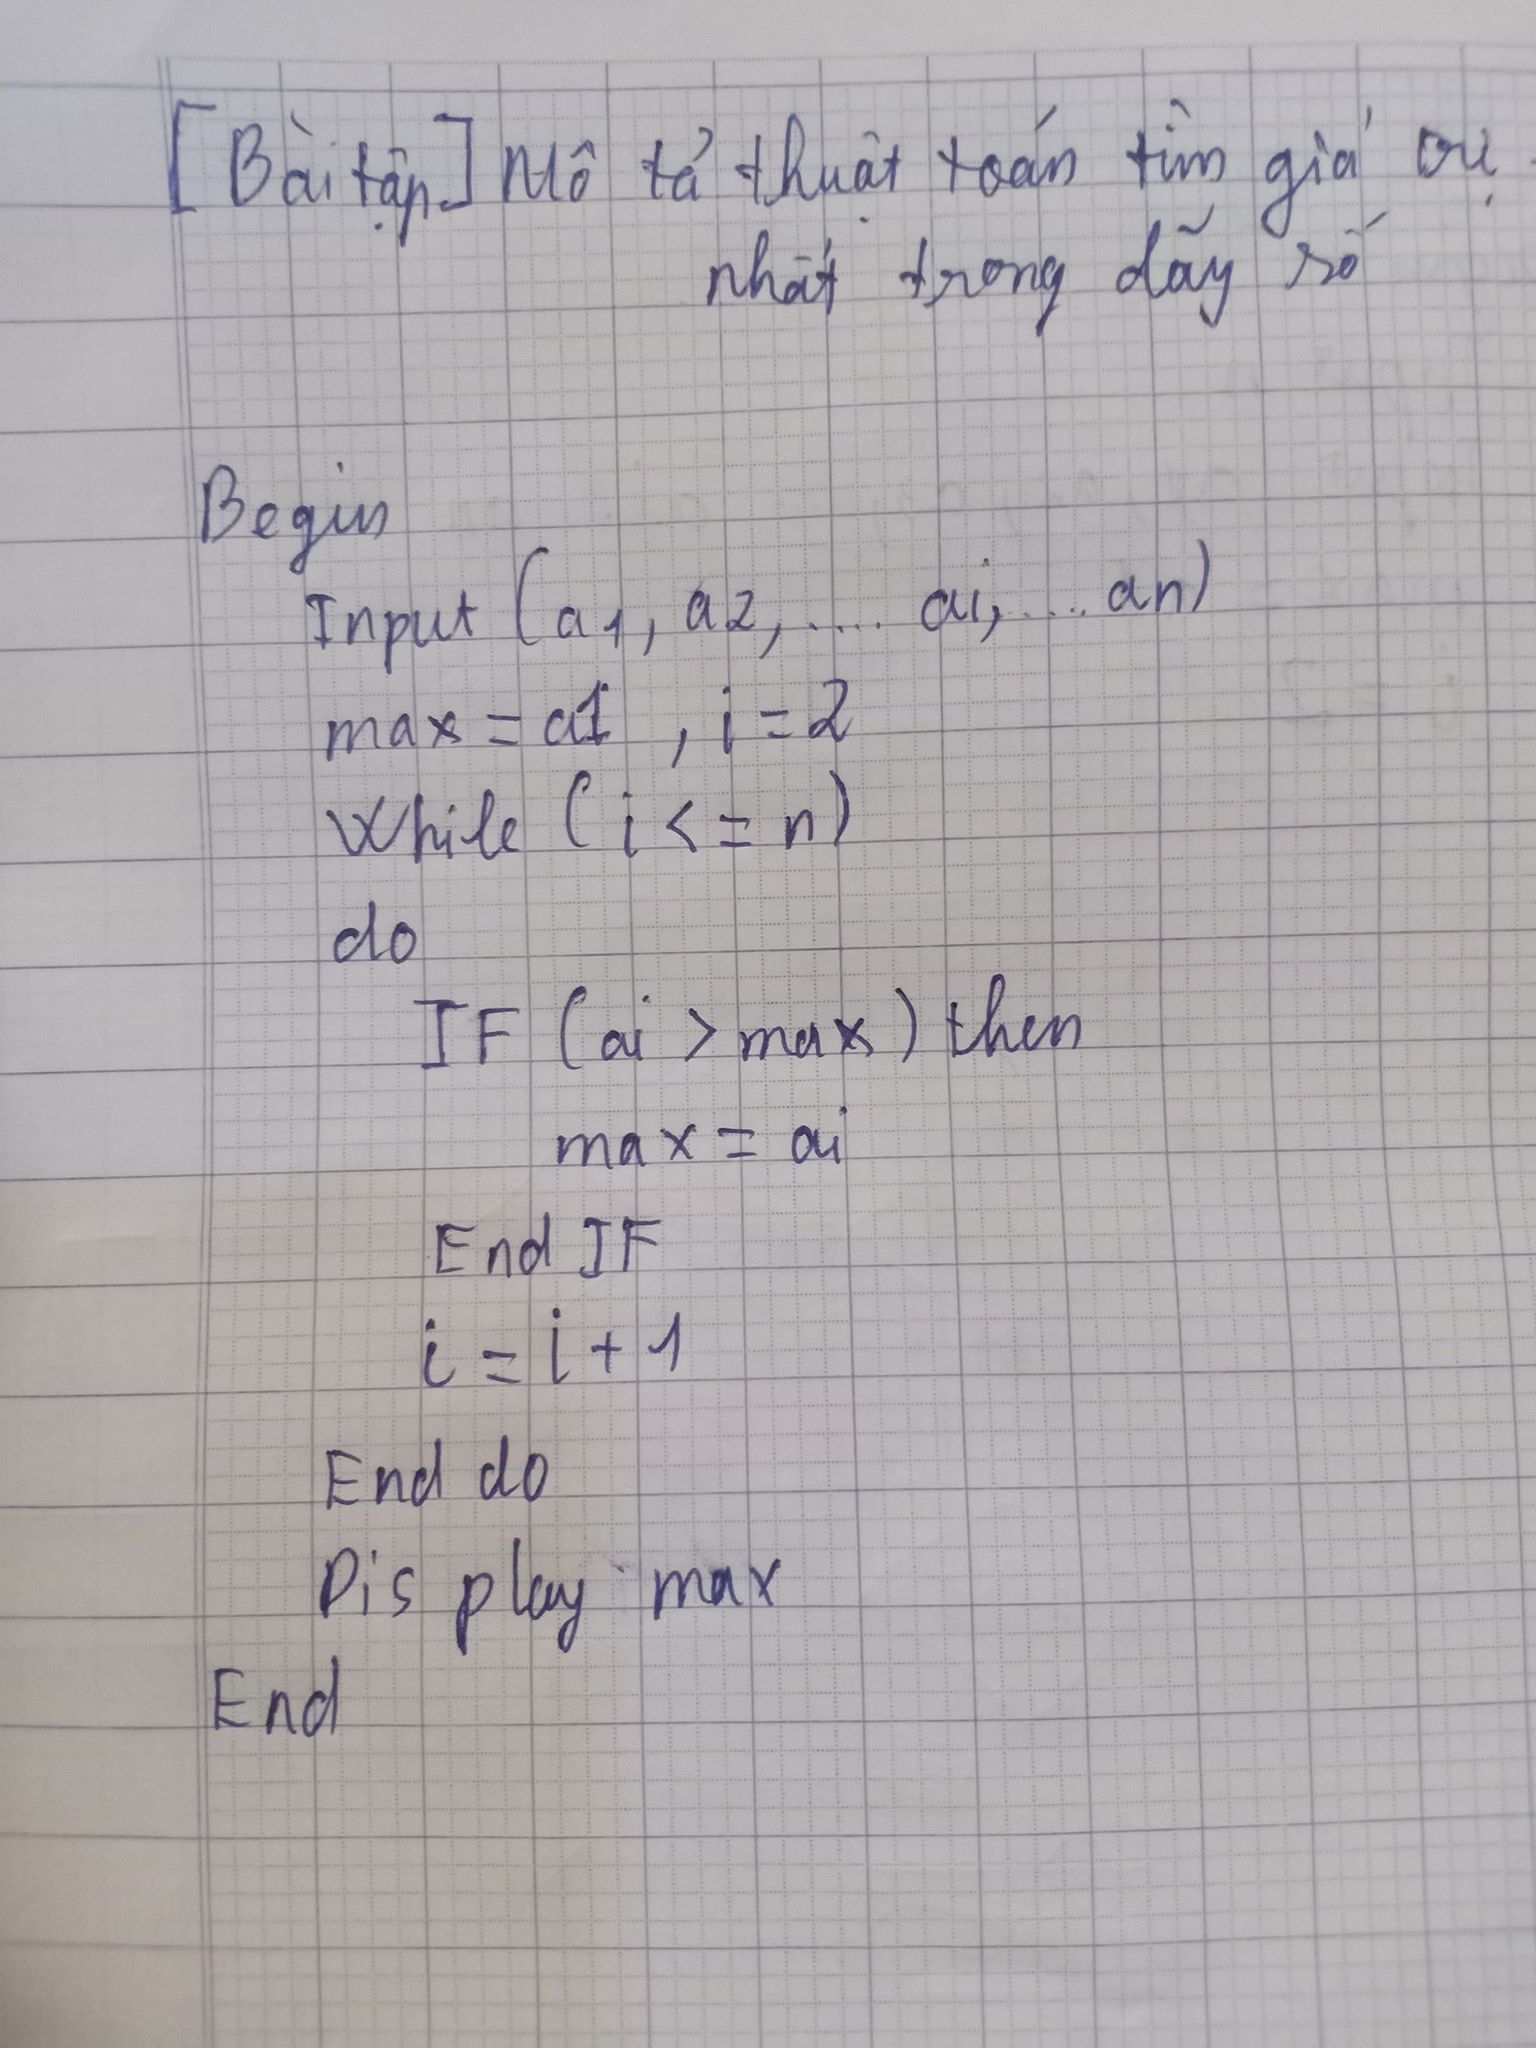 [Bài tập] Mô tả thuật toán tìm giá trị
nhất trong dãy số
Begin
Input (a1, a2, .... ai, ... an)
max = a1 , i = 2
While (i <= n)
do
IF (ai > max) then
max = ai
End IF
i = i + 1
End do
Display max
End